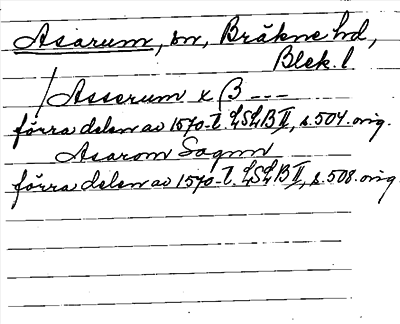 Asarum, sn, Bräkne hd,
Blek. l
/ Asserum x β ---
förra delen av 1570-t. LSLB II, s. 504. orig.
Asarom Sognn
förra delen av 1570-t. LSLB II, s. 508. orig.